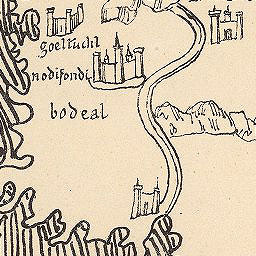 goeltucht
nodifondi
bodeal